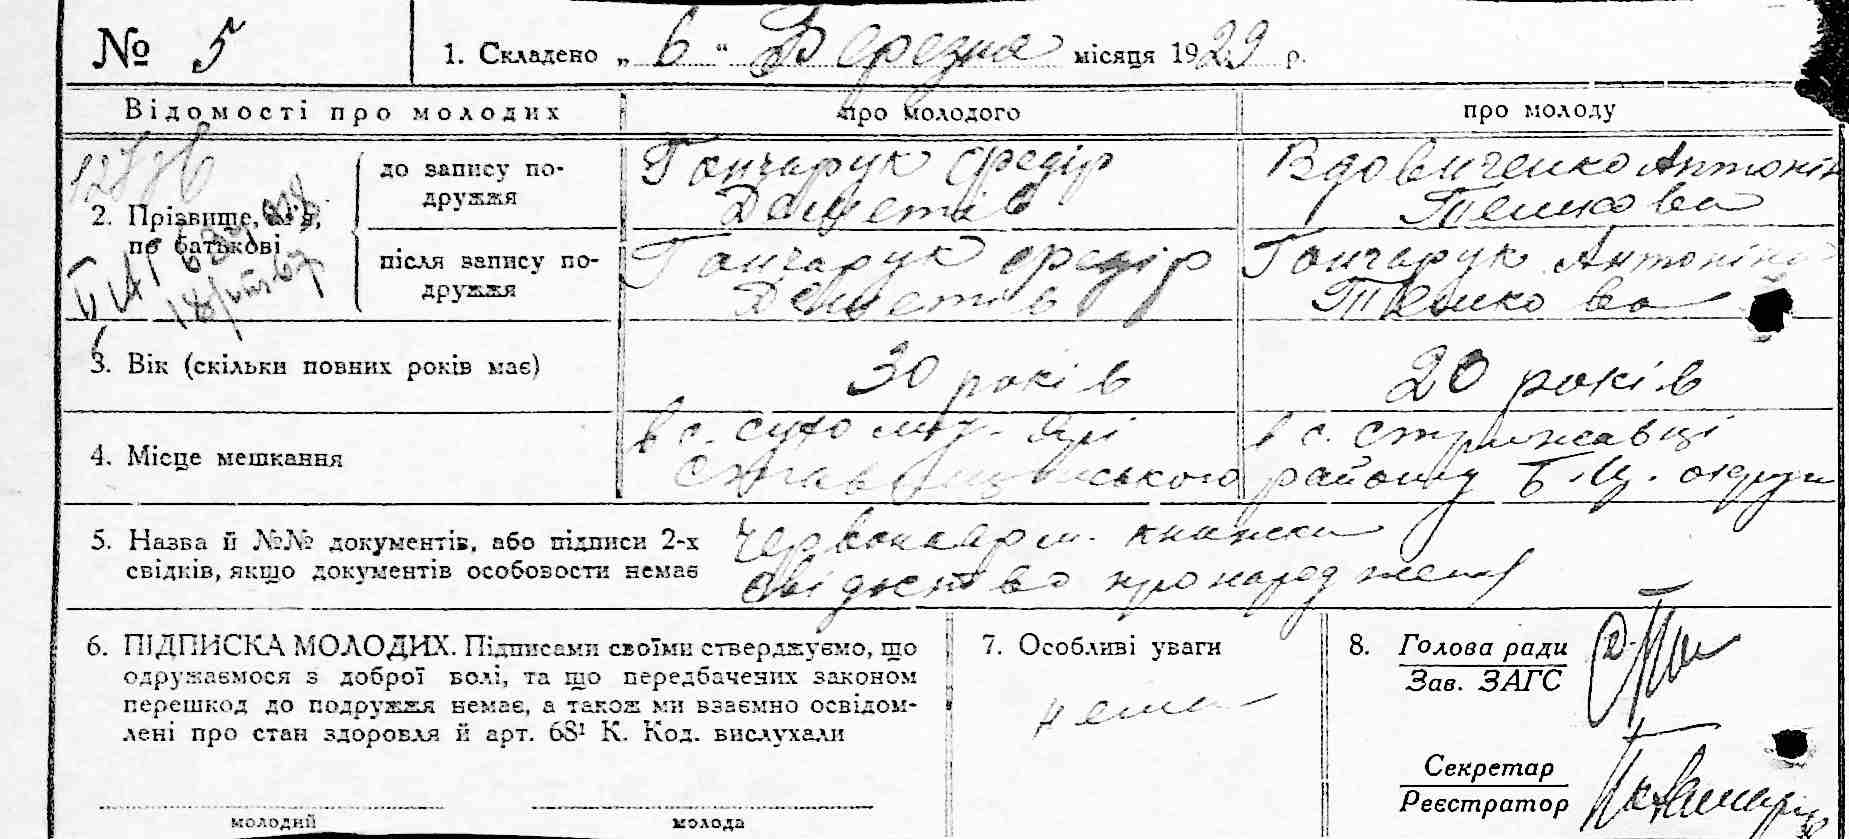 № 5
1. Складено „ 6 “ Березня місяця 1929 р.
Відомості про молодих
про молодого
про молоду
2. Прізвище, ім'я, по батькові
до запису по-
дружжя
Гончарук Федір
Деметів
Вдовиченко Антонін
Темкова
після запису по-
дружжя
Гончарук Федір
Деметів
Гончарук Антоніна
Темкова
3. Вік (скільки повних років має)
30 років
20 років
4. Місце мешкання
в с. Сухому-Ярі
в с. Стрижавці
Ставищанського району Б.Ц. округи
5. Назва й №№ документів, або підписи 2-х
свідків, якщо документів особовости немає
Червоноарм. книжки
свідоство про народження
6. ПІДПИСКА МОЛОДИХ. Підписами своїми стверджуємо, що
одружаємося з доброї волі, та що передбачених законом
перешкод до подружжя немає, а також ми взаємно освідом-
лені про стан здоровля й арт. 68¹ К. Код. вислухали
молодий
молода
7. Особливі уваги
нема
8. Голова ради
Зав. ЗАГС
Секретар
Реєстратор